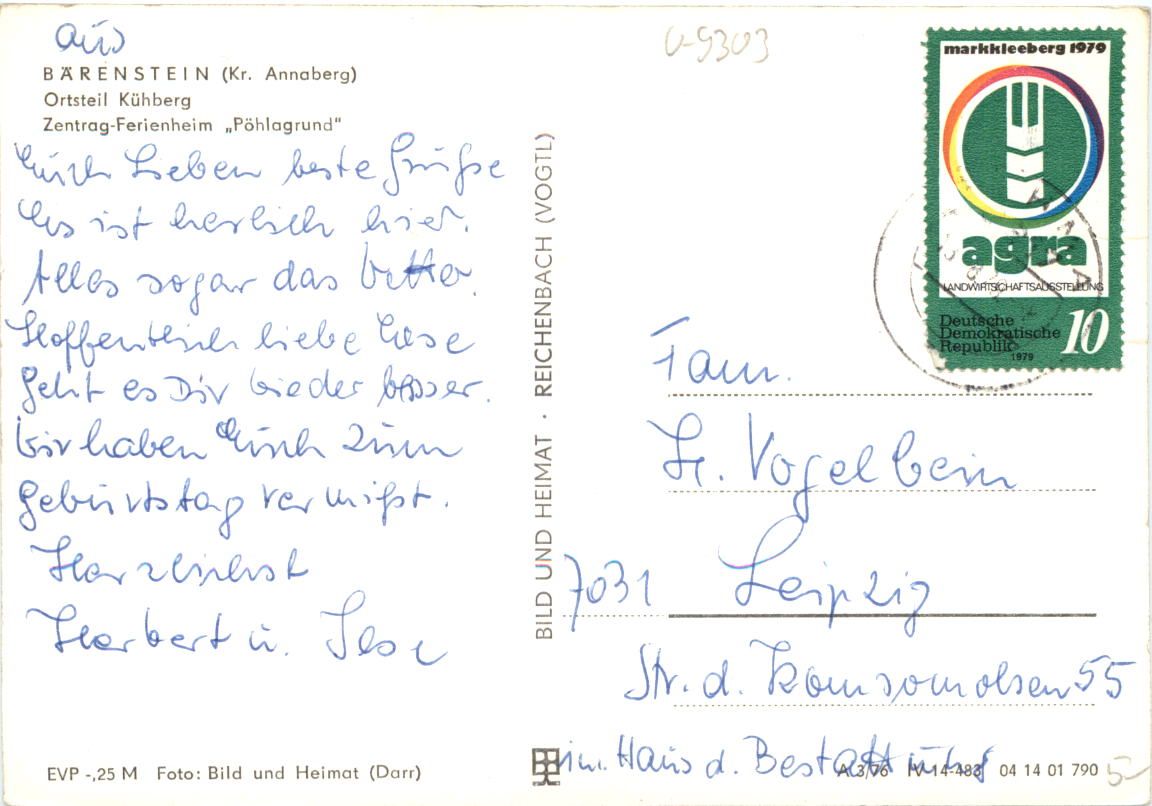 aus
BÄRENSTEIN (Kr. Annaberg)
Ortsteil Kühberg
Zentrag-Ferienheim „Pöhlagrund"
Euch Lieben beste Grüße
Es ist herrlich hier.
Alles sogar das Wetter.
Hoffentlich liebe Ilse
geht es Dir wieder besser.
Wir haben Euch zum
Geburtstag vermißt.
Herzlichst
Herbert u. Ilse
EVP -,25 M Foto: Bild und Heimat (Darr)
BILD UND HEIMAT · REICHENBACH (VOGTL)
V-9303
markkleeberg 1979
agra
LANDWIRTSCHAFTSAUSSTELLUNG
Deutsche
Demokratische
Republik 10
1979
Fam.
H. Vogelbein
7031 Leipzig
Str. d. Komsomolsen 55
im Haus d. Bestattung
A 3/76 IV-14-483 04 14 01 790 5-